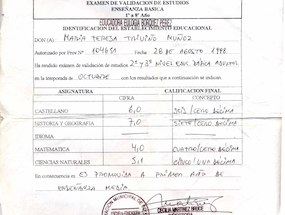 EXAMEN DE VALIDACION DE ESTUDIOS
ENSEÑANZA BASICA
1º a 8º Año
EDUCADORA EULOGIA BORQUEZ PEREZ
IDENTIFICACION DEL ESTABLECIMIENTO EDUCACIONAL
DON (A) MARIA TERESA MUÑOZ
Autorizado por Prov Nº FECHA 28 DE AGOSTO 1998
ha rendido examen de validación de estudios 2º y 3º NIVEL EDUC. BASICA ADULTOS
en la temporada de OCTUBRE con los resultados que a continuación se indican:
ASIGNATURA CALIFICACION FINAL
CIFRA CONCEPTO
CASTELLANO 6,0 SEIS/CERO DECIMA
HISTORIA Y GEOGRAFIA 7,0 SIETE/CERO DECIMA
IDIOMA
MATEMATICA 4,0 CUATRO/CERO DECIMA
CIENCIAS NATURALES 5,1 CINCO/UNA DECIMA
En consecuencia es PROMOVIDA A PRIMER AÑO DE
ENSEÑANZA MEDIA
CECILIA MARTINEZ